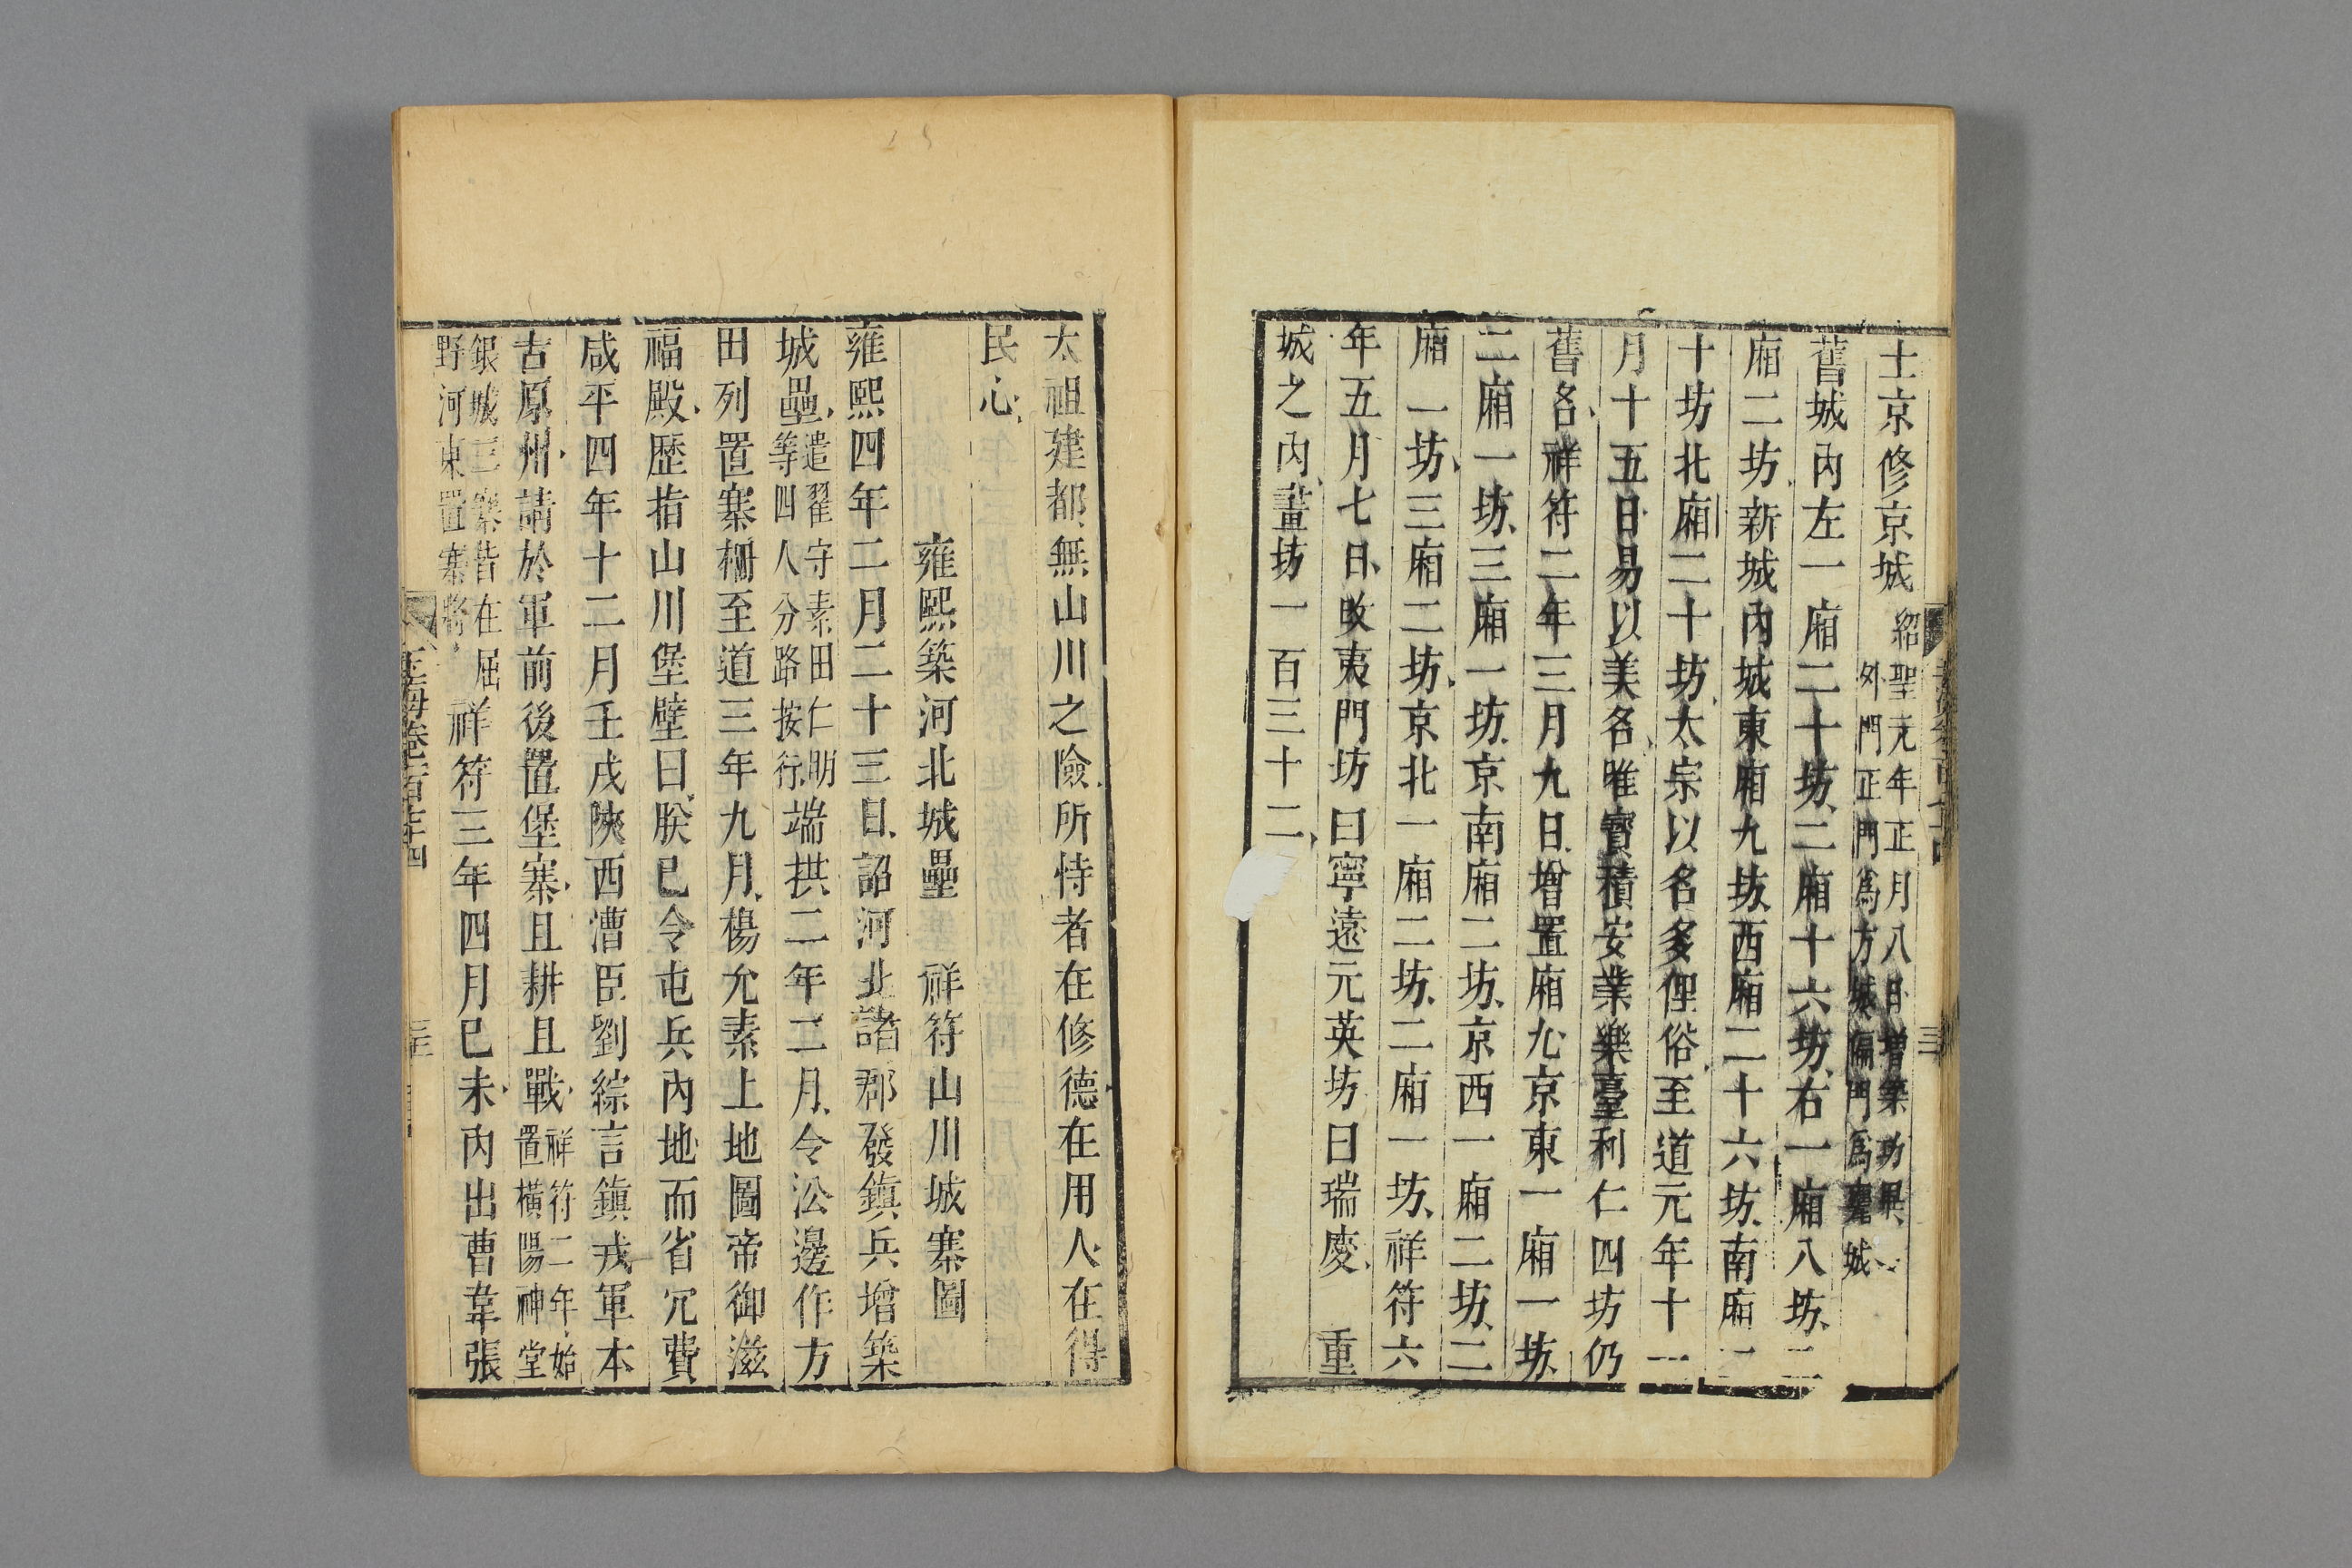 士京修京城紹聖元年正月八日增築功畢外門正門爲方城偏門爲甕城
舊城內左一廂二十坊二廂十六坊右一廂八坊二
廂二坊新城內城東廂九坊西廂二十六坊南廂二
十坊北廂二十坊太宗以名多俚俗至道元年十一
月十五日易以美名唯寶積安業樂臺利仁四坊仍
舊名祥符二年三月九日增置廂九京東一廂一坊
二廂一坊三廂一坊京南廂二坊京西一廂二坊二
廂一坊三廂二坊京北一廂二坊二廂一坊祥符六
年五月七日改夷門坊曰寧遠元英坊曰瑞慶重
城之內畫坊一百三十二
太祖建都無山川之險所恃者在修德在用人在得
民心
雍熙築河北城壘 祥符山川城寨圖
雍熙四年二月二十三日詔河北諸郡發鎮兵增築
城壘遣翟守素田仁朗等四人分路按行端拱二年二月令㳂邊作方
田列置寨柵至道三年九月楊允素上地圖帝御滋
福殿歷指山川堡壁曰朕已令屯兵內地而省冗費
咸平四年十二月壬戌陝西漕臣劉綜言鎮戎軍本
古原州請於軍前後置堡寨且耕且戰祥符二年始置橫陽神堂
銀城三寨皆在屈野河東置寨將祥符三年四月己未內出曹葦張
玉海卷一百七十四